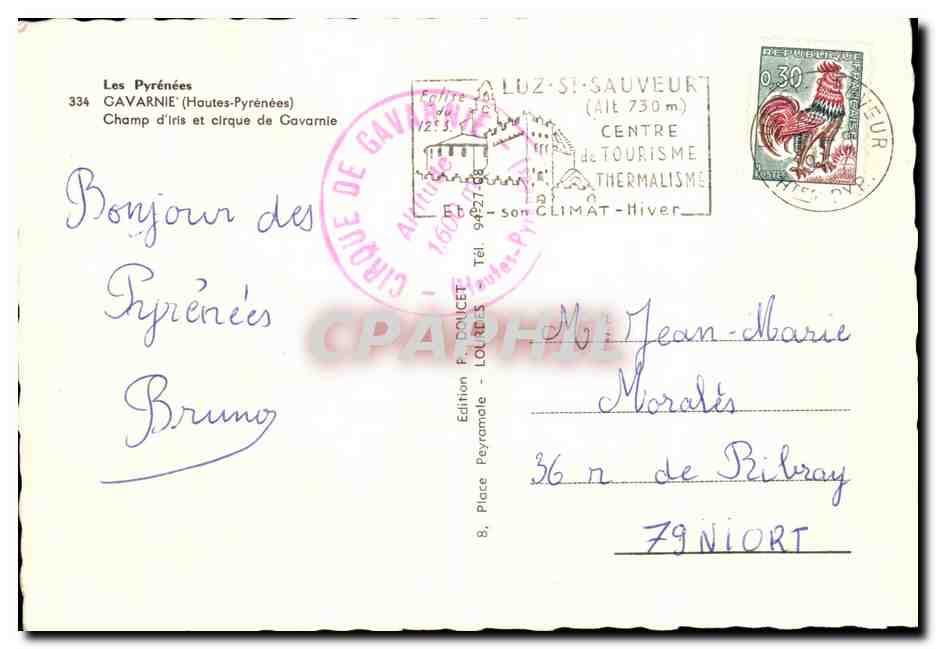 Les Pyrénées
334 GAVARNIE (Hautes-Pyrénées)
Champ d'iris et cirque de Gavarnie
Bonjour des
Pyrénées
Bruno
CIRQUE DE GAVARNIE
Altitude
1.600 m
(Hautes-Pyr
Eglise
du
12e S.
LUZ-St-SAUVEUR
(Alt 730 m)
CENTRE
de TOURISME
THERMALISME
Eté - son CLIMAT - Hiver
REPUBLIQUE FRANCAISE
0,30
POSTES
Edition P. DOUCET
8, Place Peyramale - LOURDES - Tél. 94-27-08
CPAPHIL
M. Jean-Marie
Moralès
36 r de Ribray
79 NIORT